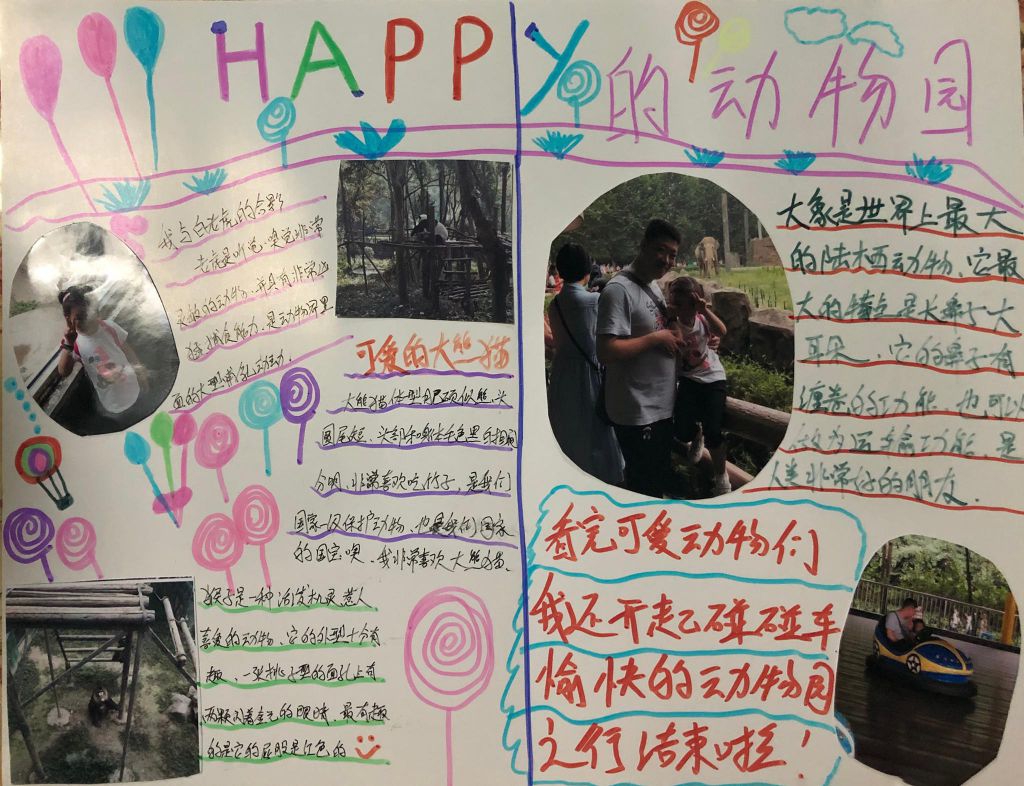 HAPPY的动物园
我与白老虎的合影
老虎是听觉、嗅觉非常
灵敏的动物,并具有非常
的能力.是动物界里
面的大型哺乳动物.
可爱的大熊猫
大熊猫体型肥硕似熊、头
圆尾短、头部和身体毛色黑白相间
分明、非常喜欢吃竹子,是我们
国家一级保护动物、也是我们国家
的国宝噢、我非常喜欢大熊猫、
猴子是一种活发机灵惹人
喜爱的动物、它的外型十分有
趣、一张桃子型的面孔上有
两颗闪着金光的眼睛、最有趣
的是它的屁股是红色的
大象是世界上最大
的陆栖动物、它最
大的特点是长鼻子大
耳朵、它的鼻子有
缠卷的功能、也可以
做为运输工能、是
人类非常好的朋友.
看完可爱动物们
我还开走了碰碰车
愉快的动物园
之行结束啦!